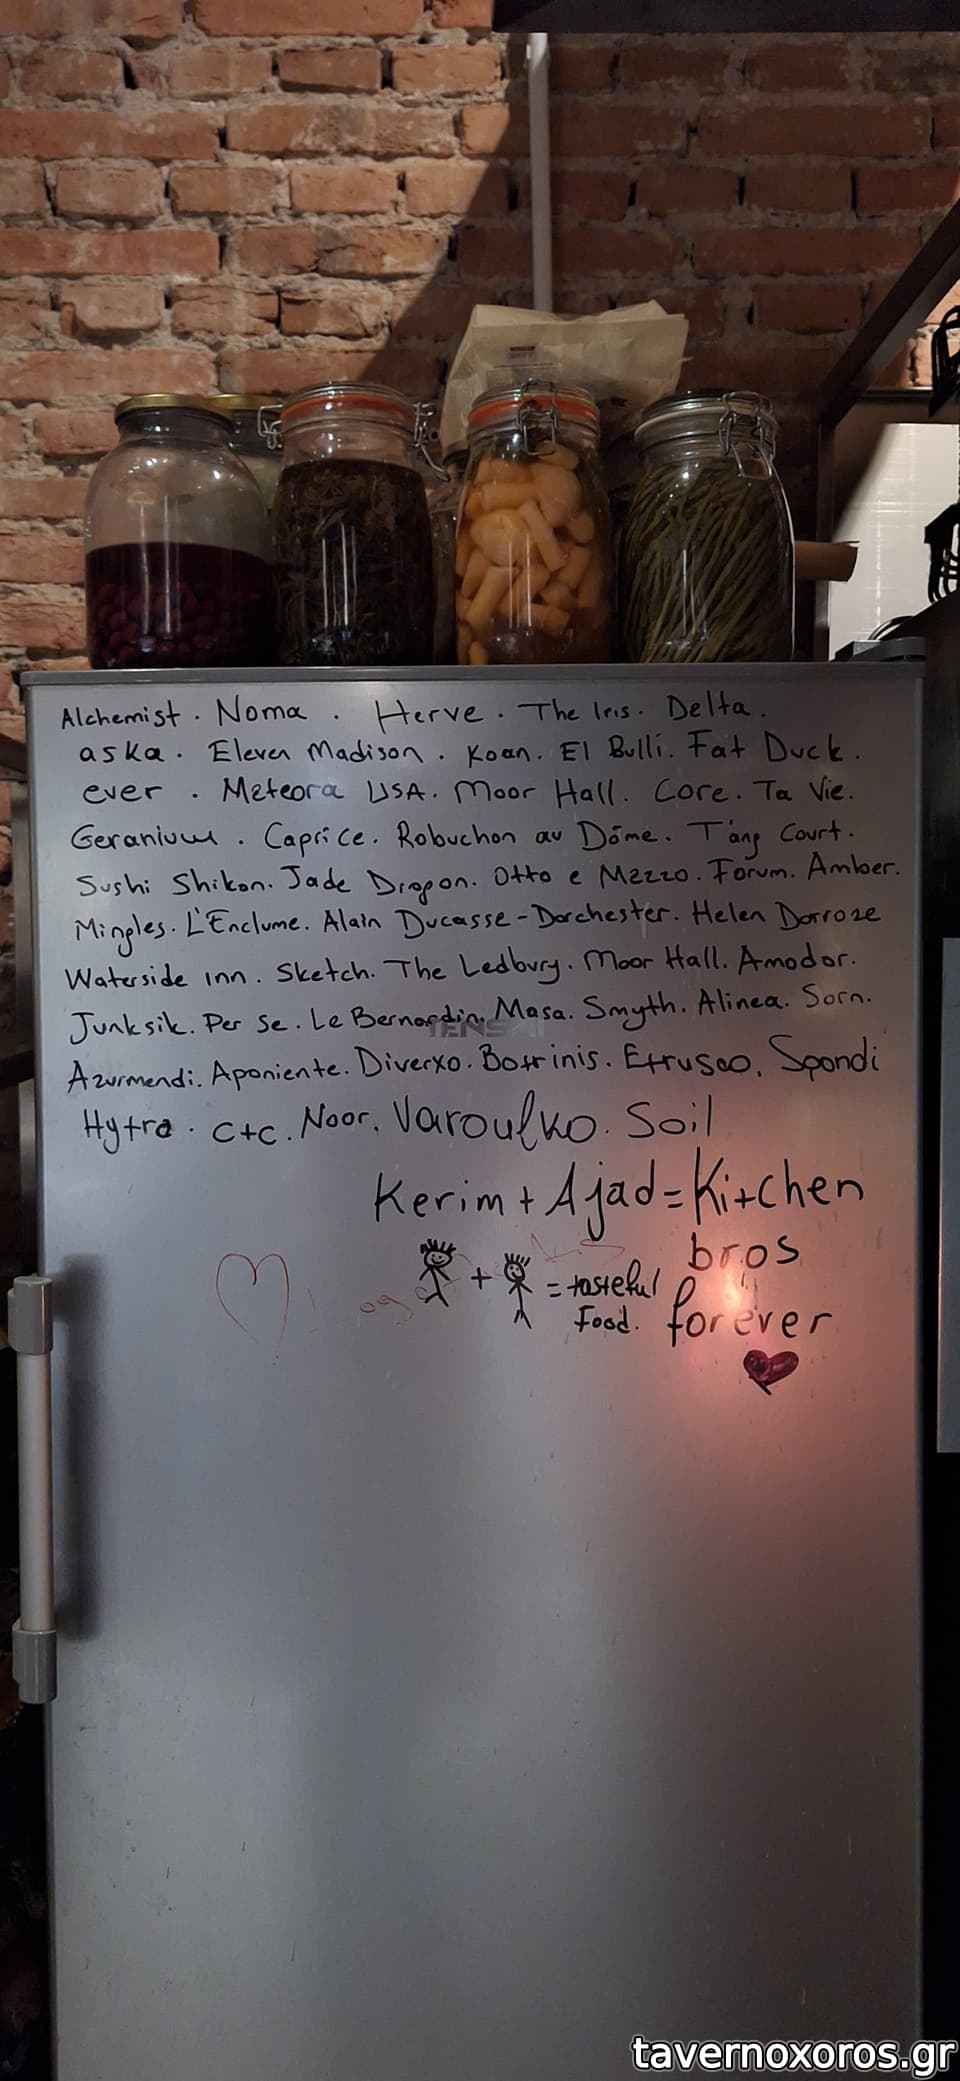 Alchemist . Noma . Herve . The Iris . Delta .
aska . Eleven Madison . Koan . El Bulli . Fat Duck .
ever . Meteora USA . Moor Hall . Core . Ta Vie .
Geranium . Caprice . Robuchon au Dôme . T'ang Court .
Sushi Shikon . Jade Dragon . Otto e Mezzo . Forum . Amber .
Mingles . L'Enclume . Alain Ducasse - Dorchester . Helen Darroze
Waterside inn . Sketch . The Ledbury . Moor Hall . Amador .
Junksik . Per Se . Le Bernardin . Masa . Smyth . Alinea . Sorn .
Azurmendi . Aponiente . Diverxo . Botrinis . Etrusco . Spondi
Hytra . C+C . Noor . Varoulko . Soil
Kerim + Ajad = Kitchen
bros
+ = tasteful
Food .
forever
tavernoxoros.gr